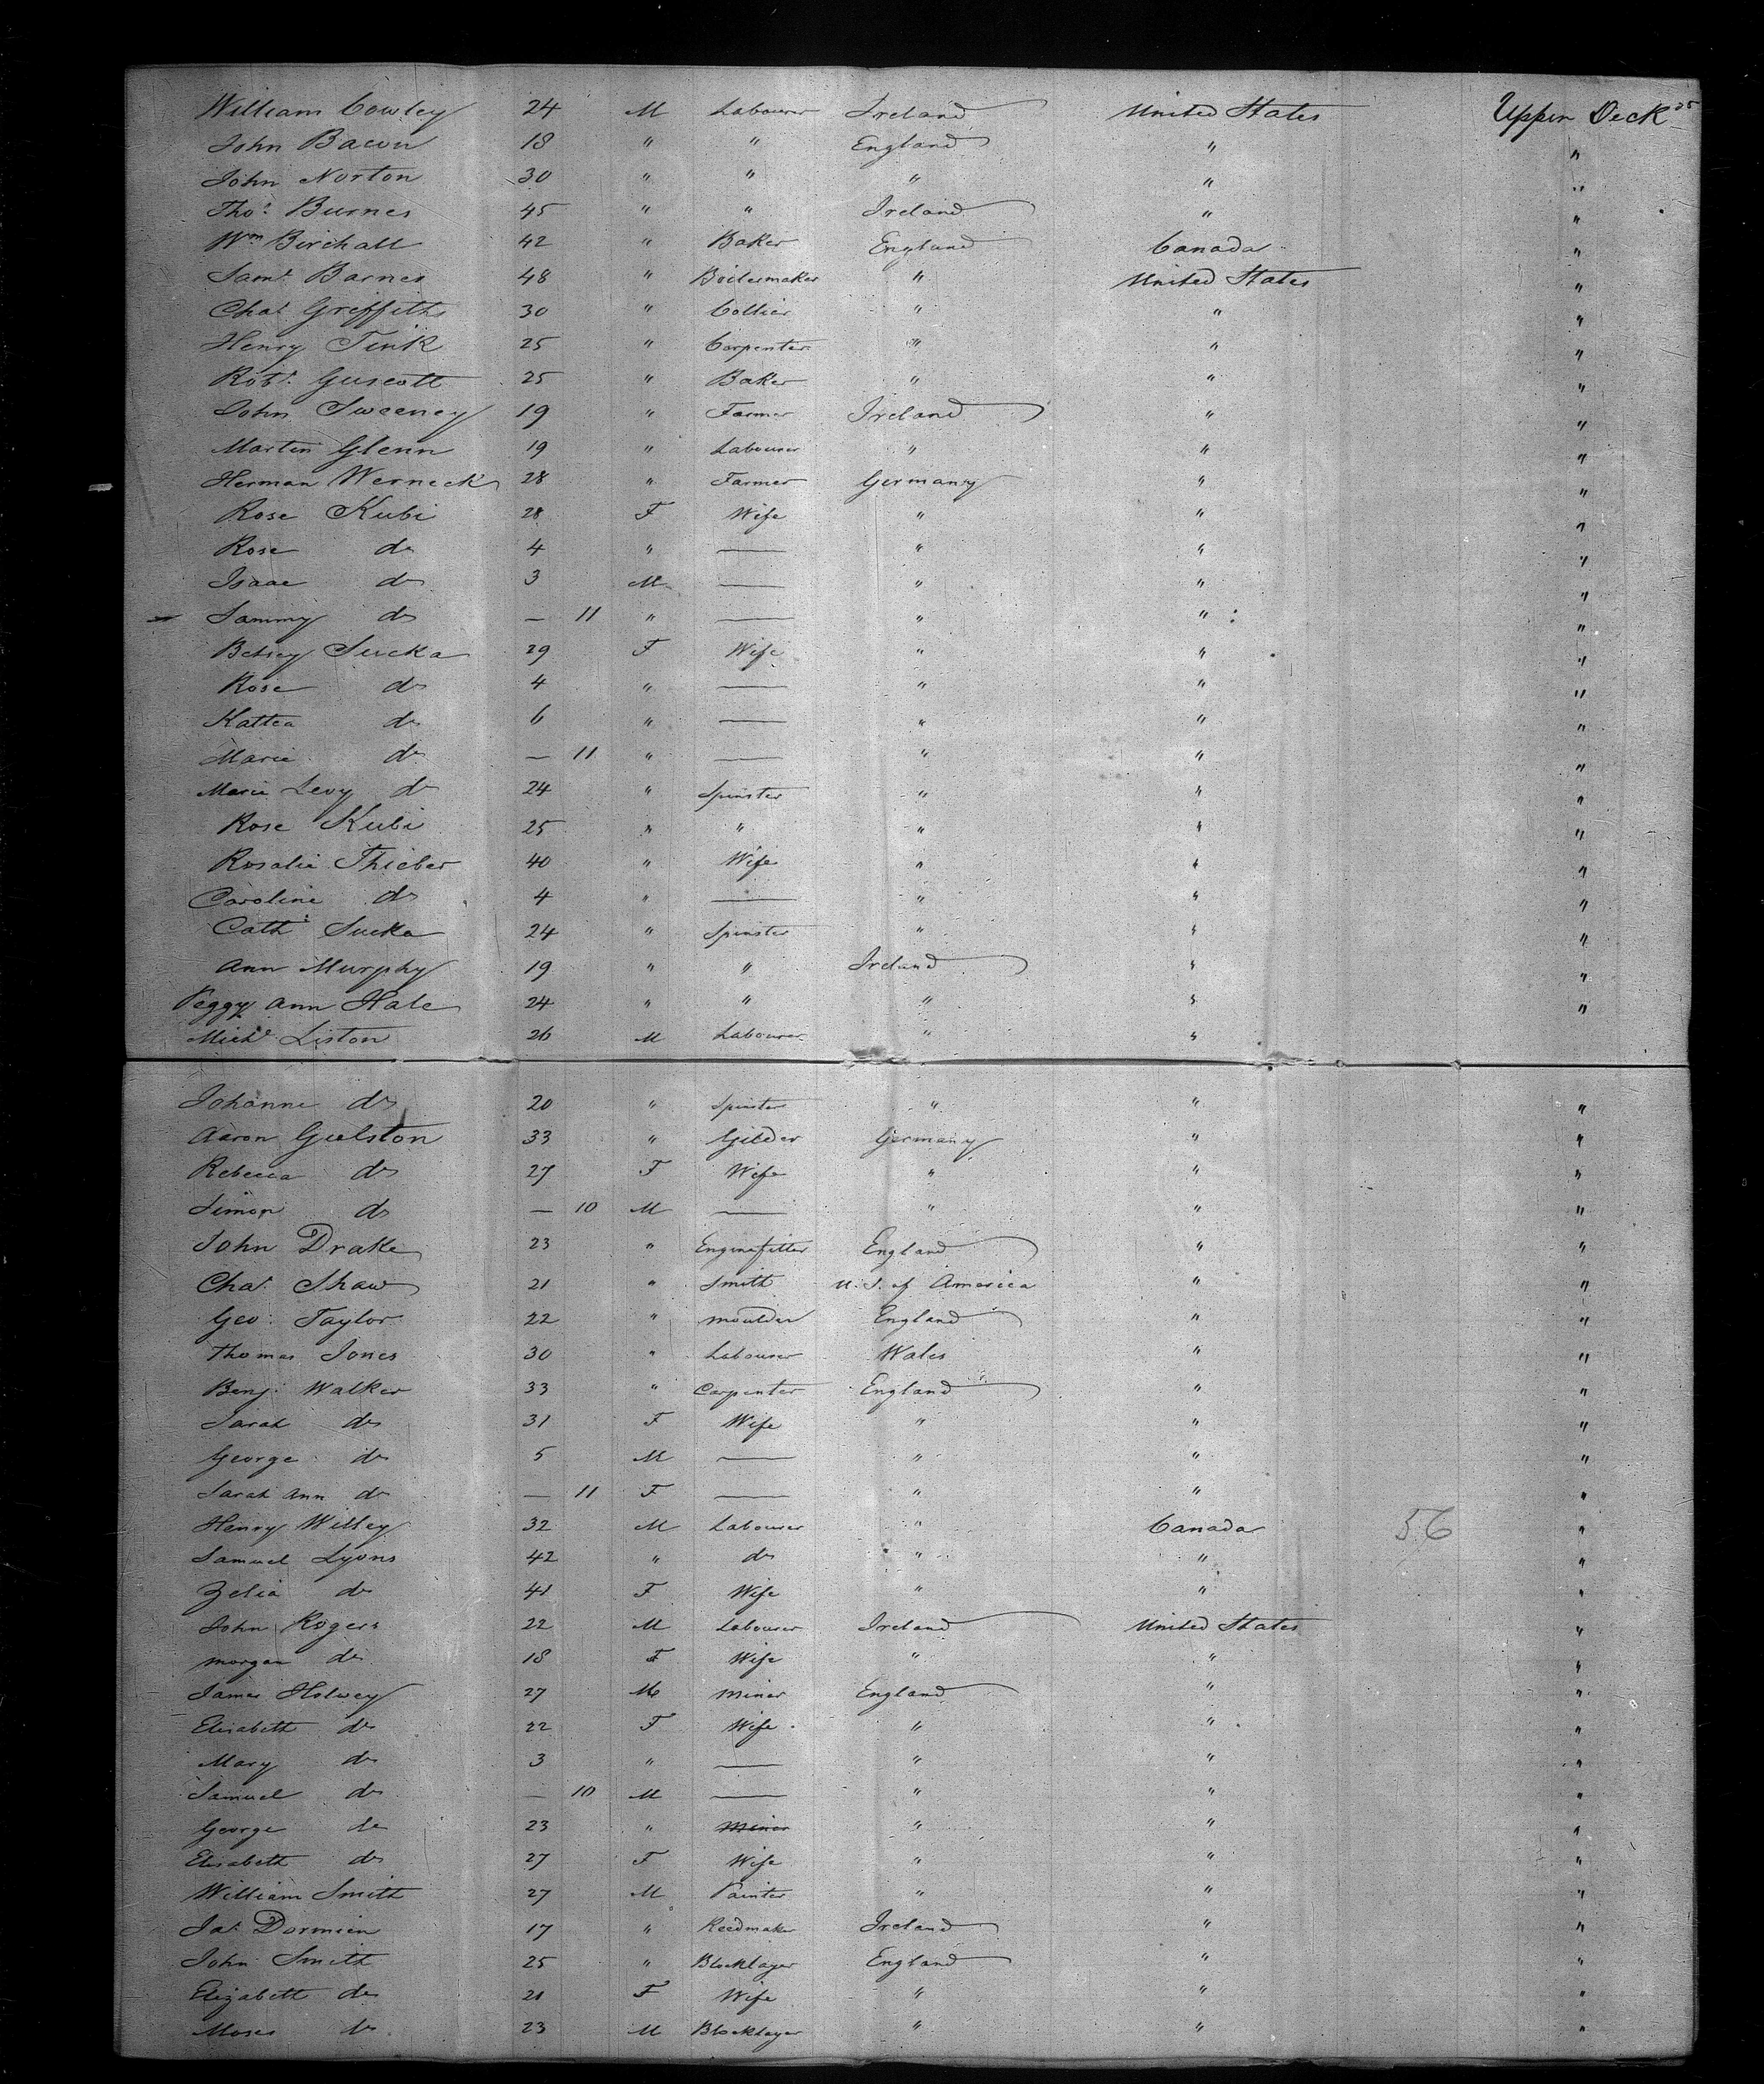 William Cowley 24 M Labourer Ireland United States Upper Deck 25
John Bacon 18 " " England " "
John Norton 30 " " " " "
Thos. Burnes 45 " " Ireland " "
Wm Birchall 42 " Baker England Canada "
Saml. Barnes 48 " Boilermaker " United States "
Chas. Griffiths 30 " Collier " " "
Henry Tink 25 " Carpenter " " "
Robt. Guscott 25 " Baker " " "
John Sweeney 19 " Farmer Ireland " "
Martin Glenn 19 " Labourer " " "
Herman Werneck 28 " Farmer Germany " "
Rose Kubi 28 F Wife " " "
Rose do 4 " — " " "
Isaac do 3 M — " " "
Sammy do — 11 " — " " "
Betsey Sucka 29 F Wife " " "
Rose do 4 " — " " "
Kattea do 6 " — " " "
Marie do — 11 " — " " "
Marie Levy do 24 " Spinster " " "
Rose Kubi 25 " " " " "
Rosalie Thieber 40 " Wife " " "
Caroline do 4 " — " " "
Cathe Sucka 24 " Spinster " " "
Ann Murphy 19 " " Ireland " "
Peggy Ann Hale 24 " " " " "
Michl Liston 26 M Labourer " "
Johanne do 20 " Spinster " " "
Aaron Guelston 33 " Gilder Germany " "
Rebecca do 27 F Wife " " "
Simon do — 10 M — " " "
John Drake 23 " Enginefitter England " "
Chas. Shaw 21 " Smith U.S. of America " "
Geo. Taylor 22 " Moulder England " "
Thomas Jones 30 " Labourer Wales " "
Benj. Walker 33 " Carpenter England " "
Sarah do 31 F Wife " " "
George do 5 M — " " "
Sarah Ann do — 11 F — " " "
Henry Willey 32 M Labourer " Canada 56 "
Samuel Lyons 42 " do " " "
Zelia do 41 F Wife " " "
John Rogers 22 M Labourer Ireland United States "
Morgan do 18 F Wife " " "
James Holwey 27 M Miner England " "
Elisabeth do 22 F Wife " " "
Mary do 3 " — " " "
Samuel do — 10 M — " " "
George do 23 " Miner " " "
Elisabeth do 27 F Wife " " "
William Smith 27 M Painter " " "
Jas. Dormien 17 " Reedmaker Ireland " "
John Smith 25 " Blocklayer England " "
Elizabeth do 21 F Wife " " "
Moses do 23 M Blocklayer " " "